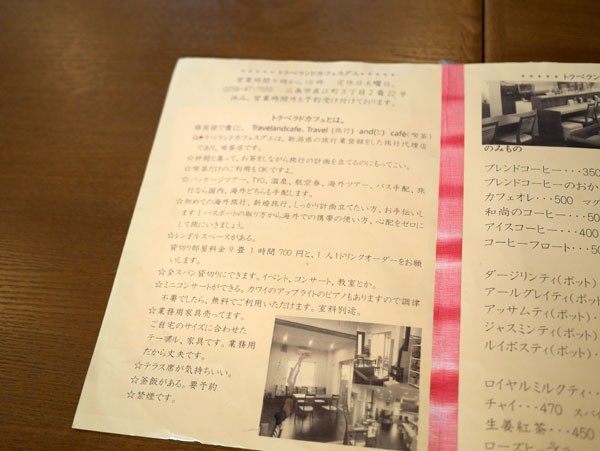 ***** トラベランドカフェスグユ *****
営業時間9時から18時 定休日火曜日。
0256-47-7555 三条市直江町3丁目2番22号
休み、営業時間外も予約受け付けております。
トラベラドカフェとは。
英語で書くと、Travelandcafe, Travel (旅行) and(と) café(喫茶)
☆トラベランドカフェスグユは、新潟県の旅行業登録をした旅行代理店
であり、喫茶店です。
☆仲間と集って、お茶をしながら旅行の計画を立てるのにもってこい。
☆喫茶だけのご利用もOKですよ。
☆パッケージツアー、TYO、温泉、航空券、海外ツアー、バス手配、旅
行なら国内、海外どちらも手配します。
☆初めての海外旅行、新婚旅行、しっかり計画立てたい方、お手伝いし
ます!パスポートの取り方から海外での携帯の使い方、心配をゼロに
して旅にいきましょう。
☆レンタルスペースがある。
貸切り部屋料金9畳1時間700円と、1人1ドリンクオーダーをお願
いします。
☆全スパン貸切りにできます。イベント、コンサート、教室とか。
☆ミニコンサートができる。カワイのアップライトのピアノもありますので調律
不要でしたら、無料でご利用いただけます。室料別途。
☆業務用家具売ってます。
ご自宅のサイズに合わせた
テーブル、家具です。業務用
だから丈夫です。
☆テラス席が気持ちいい。
☆釜飯がある。要予約
☆禁煙です。
***** トラベラン
のみもの
ブレンドコーヒー・・・350
ブレンドコーヒーのおか
カフェオレ・・・500 マグ
和尚のコーヒー・・・50
アイスコーヒー・・・400
コーヒーフロート・・・50
ダージリンティ(ポット)
アールグレイティ(ポット)
アッサムティ(ポット)・
ジャスミンティ(ポット)
ルイボスティ(ポット)・
ロイヤルミルクティ・・・
チャイ・・・470 スパイ
生姜紅茶・・・450
ローズヒップ